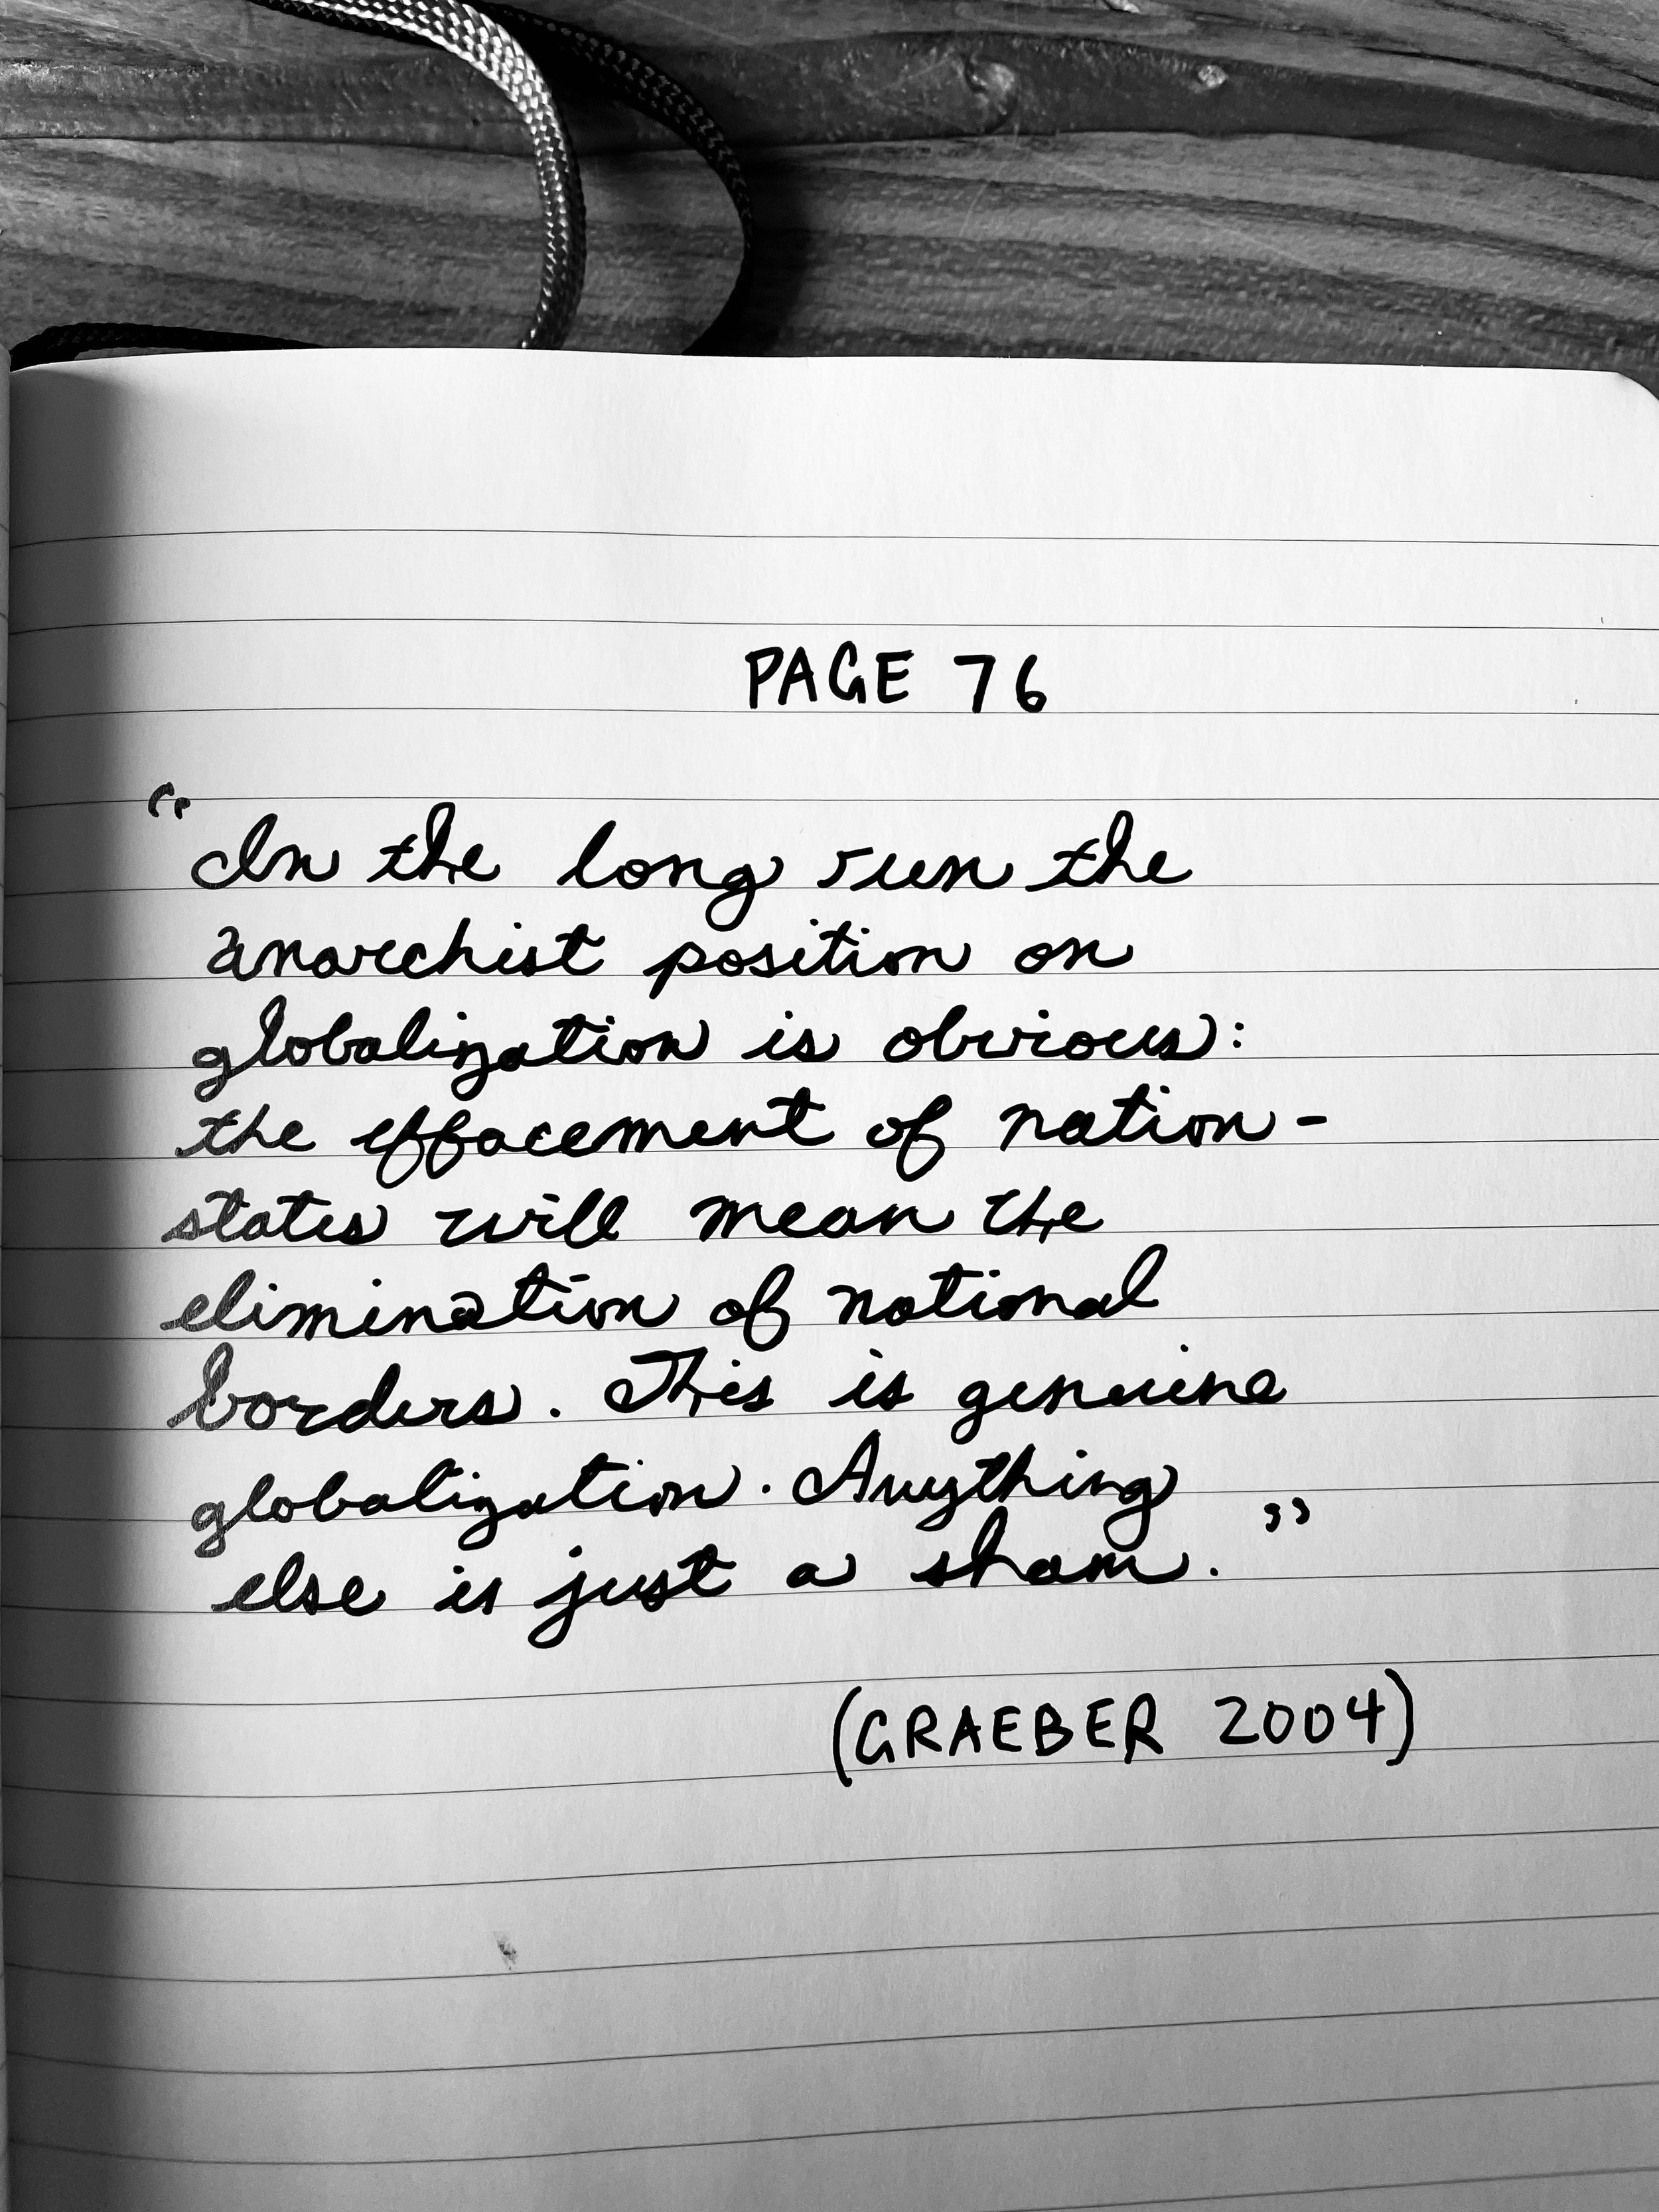 PAGE 76
“In the long run the
anarchist position on
globalization is obvious:
the effacement of nation-
states will mean the
elimination of national
borders. This is genuine
globalization. Anything
else is just a sham.”
(GRAEBER 2004)